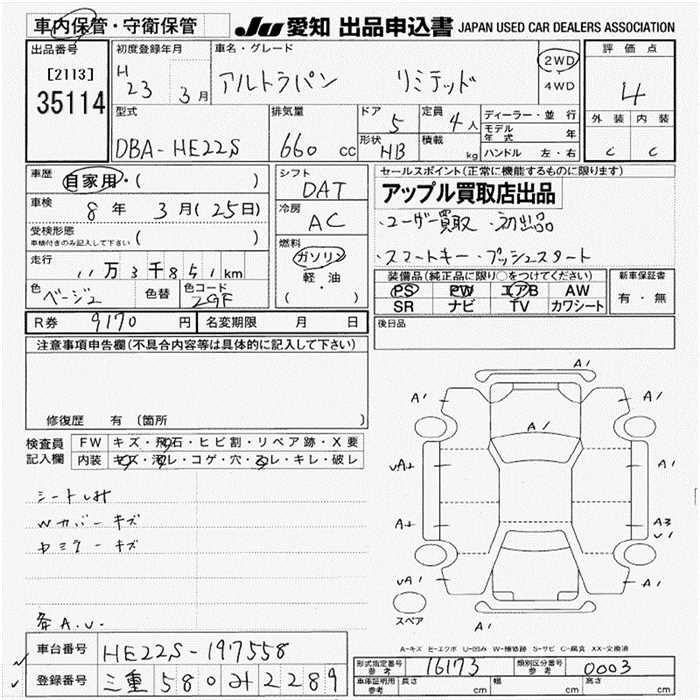 車内保管・守衛保管 JU 愛知 出品申込書 JAPAN USED CAR DEALERS ASSOCIATION
出品番号 初度登録年月 車名・グレード 評価点
[2113] H 23 3月 アルトラパン リミテッド 2WD 4
35114 4WD
外装 内装
型式 排気量 ドア 5 定員 4人 ディーラー・並行
モデル年式 年
DBA-HE22S 660 cc 形状 HB 積載 kg ハンドル 左・右 C C
車歴 自家用・( ) シフト DAT セールスポイント(正常に機能するものに限ります)
アップル買取店出品
車検 8年 3月(25日) 冷房 AC ・ユーザー買取 ・初出品
受検形態 車検付きのみ記入して下さい ( ) 燃料 ・スマートキー・プッシュスタート
走行 11万3千851km ガソリン 装備品(純正品に限り○をつけてください) 新車保証書
軽・油 PS PW エアB AW 有・無
色 ベージュ 色替 色コード Z9F ( ) SR ナビ TV カワシート
R券 9170円 名変期限 月 日 後日品
注意事項申告欄(不具合内容等は具体的に記入して下さい)
修復歴 有 (箇所 )
検査員記入欄 FW キズ・飛石・ヒビ割・リペア跡・X要
内装 キズ・汚レ・コゲ・穴・スレ・キレ・破レ
シートしみ
Wカバーキズ
キズ
A.U.
A1
A1 A1
A1
A1
A2 A3
A1 A1
スペア A1
A-キズ E-エクボ U-凹み W-補修跡 S-サビ C-腐食 XX-交換済
車台番号 HE22S-197558
登録番号 三重 580 み 2289
形式指定番号 参考 16173 類別区分番号 参考 0003
車庫証明用 参考 長さ cm 幅 cm 高さ cm